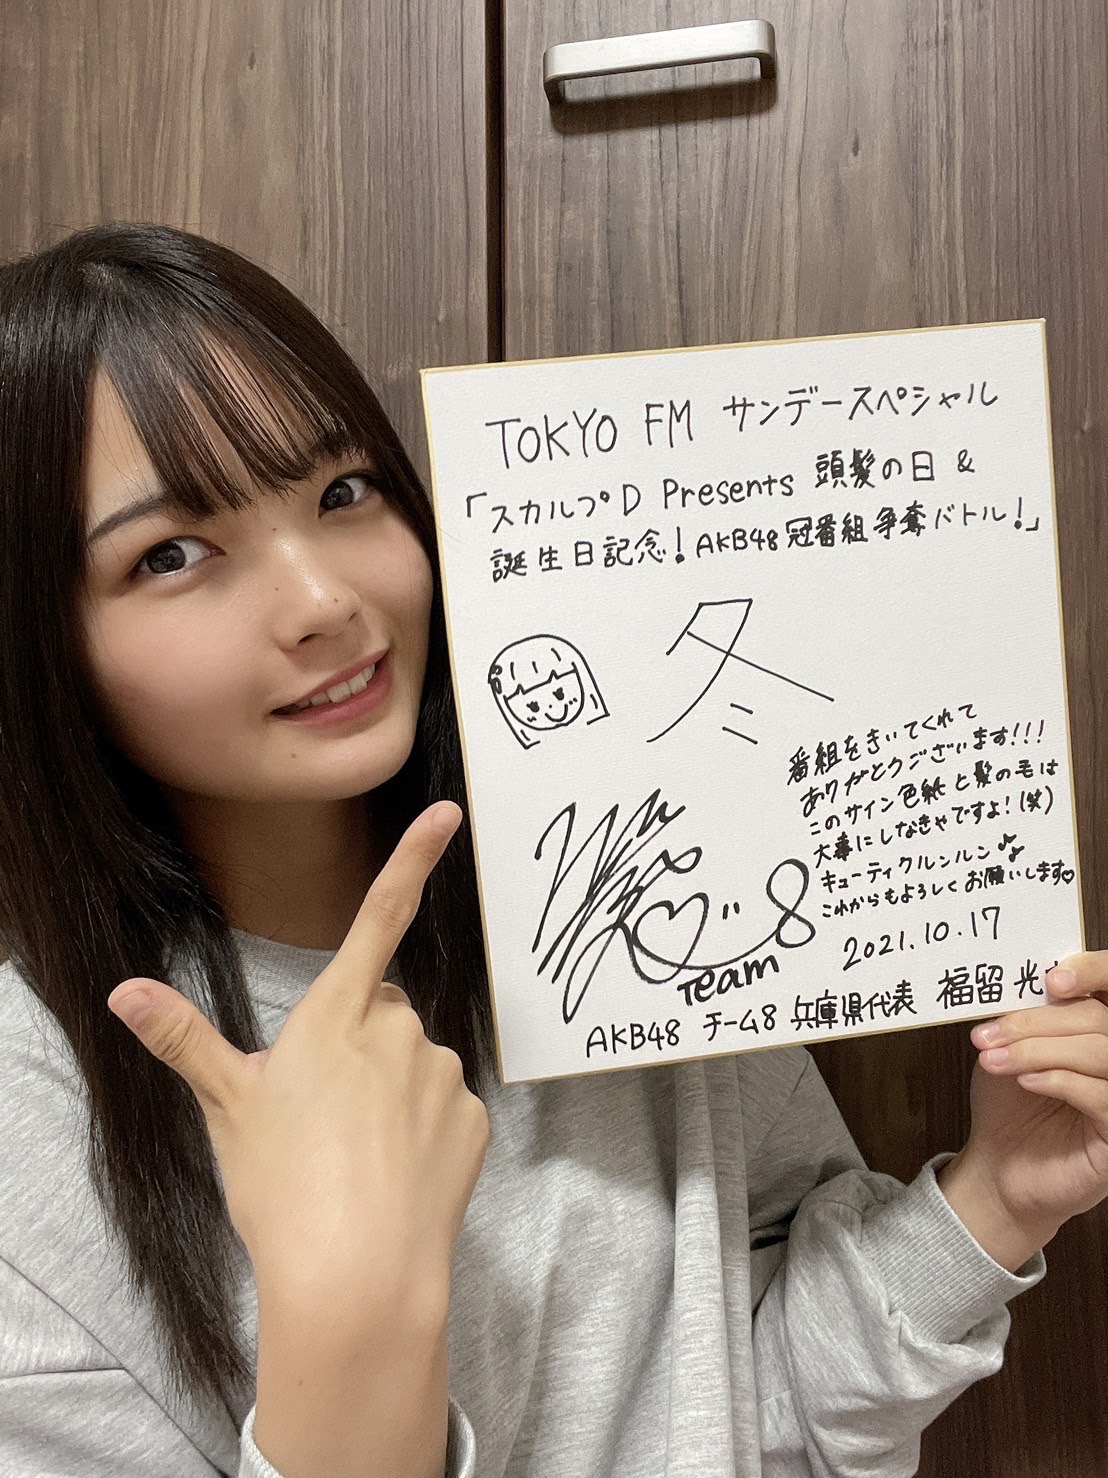 TOKYO FM サンデースペシャル
「スカルプD Presents 頭髪の日 &
誕生日記念！AKB48冠番組争奪バトル！」
冬
番組をきいてくれて
ありがとうございます!!!
このサイン色紙と髪の毛は
大事にしなきゃですよ！(笑)
キューティクルンルン♪
これからもよろしくお願いします♡
2021.10.17
8
Team
AKB48 チーム8 兵庫県代表 福留 光